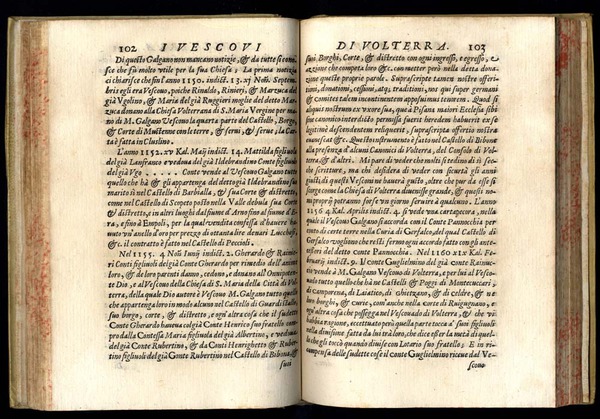 102 I VESCOVI
Di questo Galgano non mancano notizie, & da tutte si conosce
che fù molto vtile per la sua Chiesa; La prima notizia
ci chiarisce che fin l'anno 1150. indict. 13. xj Noñ. Septembris
egli era Vescouo, poiche Rinaldo, Rinieri, & Marzuca del
già Vgolino, & Maria del già Ruggieri moglie del detto Marzuca
donano alla Chiesa Volterrana di S. Maria Vergine per mano
di M. Galgano Vescouo la quarta parte del Castello, Borgo,
& Corte di Mustenne con le terre, & serui, & serue; la Carta
è fatta in Cluslino.
L'anno 1152. xv Kal. Maij indict. 14. Matilda figliuola
del già Lanfranco e vedoua del già Ildebrandino Conte figliuolo
del già Vgo . . . . . Conte vende al Vescouo Galgano tutto
quello che hà & gli appartenga del dette già Ildebrandino suo
marito sì nel Castello di Barbialla, & sua Corte & distretto,
come nel Castello di Scopeto posto nella Valle debula sua Corte
& distretto, e in altri luoghi dal fiume d'Arno sino al fiume d'Era,
e sino à Empoli, per la qual vendita confessa d'hauere hauuto
vn'anello d'oro per prezzo di ottanta lire denari Lucchesi,
&c. il contratto è fatto nel Castello di Peccioli.
Nel 1155. 4 Noñ Iunij indict. 2. Gherardo & Rainieri
Conti figliuoli del già Conte Gherardo per rimedio dell'anime
loro, & de loro parenti danno, cedono, e donano all'Onnipotente
Dio, e al Vescouo della Chiesa di S. Maria della Città di Volterra,
della quale Dio autore è Vescouo M. Galgano tutto quello
che appartenga loro in modo alcuno nel Castello di Guardistallo,
suo borgo, corte, & distretto, e ogni altra cosa che il sudetto
Conte Gherardo haueua col già Conte Henrico suo fratello compro
dalla Contessa Maria figliuola del già Albertino, e vedoua
del già Conte Rubertino, & da Conti Henrighetto & Rubertino
figliuoli del già Conte Rubertino nel Castello di Bibona, &
suoi
DI VOLTERRA. 103
suoi Borghi, Corte, & distretto con ogni ingresso, e egresso, e
azzione che competa loro &c. con metter però nella detta donazione
queste proprie parole. Suprascripte tamen nostre offersioni,
donationi, cessioni, atq; traditioni, ms qui super germani
& comites talem incontinentem apposuimus tenorem. Quod si
aliquis nostrum ex vxore sua, quam Pisana maiori Ecclesia sibi
sine canonico interdicto permissa fuerit heredem habuerit ex se
legitimè descendentem reliquerit, suprascripta offertio nostra
euacuet &c. Questo instrumento è fatto nel Castello di Bibona
alla presenza d'alcuni Canonici di Volterra, del Consolo di Volterra,
& d'altri. Mi pare di veder che molti si tedino di sì secche
scritture, ma chi desidera di veder con sicurtà gli antigusti,
di questi Vescoui ne hauerà gusto, oltre che pur da esse si
scorge come la Chiesa di Volterra diuenisse grande, & questi nomi
proprij potranno forse vn giorno seruire à qualcuno. L'anno
1156 4 Kal. Aprilis indict. 4. si vede vna cartapecora, nella
quale il Vescouo Galgano si accorda con il Conte Pannocchia per
conto di certe terre nella Curia di Gerfalco, del qual Castello di
Gerfalco vogliono che resti fermo ogni accordo fatto con gli antecessori
del detto conte Pannocchia. Nel 1160 xix Kal. Februarij
indict. 9. il conte Guglielmino del già conte Rainuccino
vende à M. Galgano Vescouo di Volterra, e per lui al Vescouado
tutto quello che hà ne Castello & Poggi di Montecuccari,
di camporena, di Laiatico, di chetzano, & di celdre, & ne
loro borghi, & curie, com'anche nella corte di Ruignano, e
ogni altra cosa che possegga nel Vescouado di Volterra, & che vi habbia
ragione, eccettuato però quella parte tocca à suoi figliuoli
nella diuisione fatta da lui trà loro, che dice esser la metà di quello
che gli toccò quando diuise con Lotario suo fratello; E in ricompensa
delle sudette cose il conte Guglielmino riceue dal Vescouo
scouo